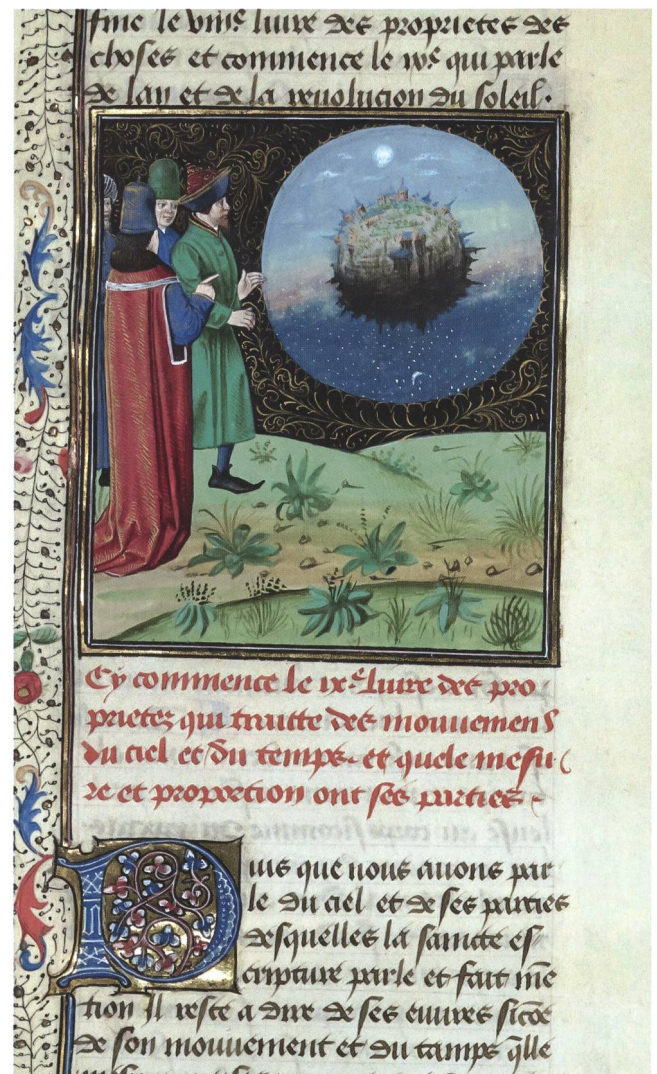 fine le viiie liure des proprietes des
choses et commence le ixe qui parle
de lan et de la reuolucion du soleil.
Cy commence le ixe. liure des pro
prietez qui traitte des mouuemens
du ciel et du temps. et quele mesu
re et proportion ont ses parties.
Puis que nous auons par
le du ciel et de ses parties
desquelles la saincte es
cripture parle et fait mē
tion Il reste a dire de ses euures sicōe
de son mouuement et du temps q̄lle